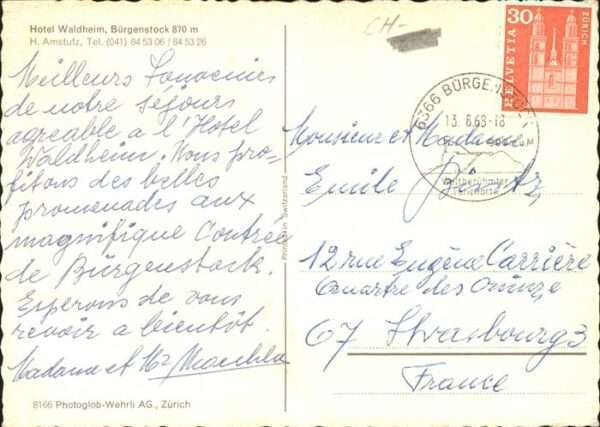 Hotel Waldheim, Bürgenstock 870 m
H. Amstutz, Tel. (041) 84 53 06 / 84 53 26
Meilleurs Souvenirs
de notre séjours
agréable a l'Hotel
Waldheim. Nous pro-
fitons des belles
promenades aux
magnifique Contrée
de Bürgenstock.
Esperons de vous
revoir a bientôt.
Madame et Mr
8166 Photoglob-Wehrli AG., Zürich
Printed in Switzerland
CH-
30
HELVETIA
ZÜRICH
6366 BÜRGENSTOCK
13. 8.68-18
Weltberühmter
Ferienort
Monsieur et Madame
Emile
12 rue Eugène Carrière
Quartre des
67 Strasbourg 3
France